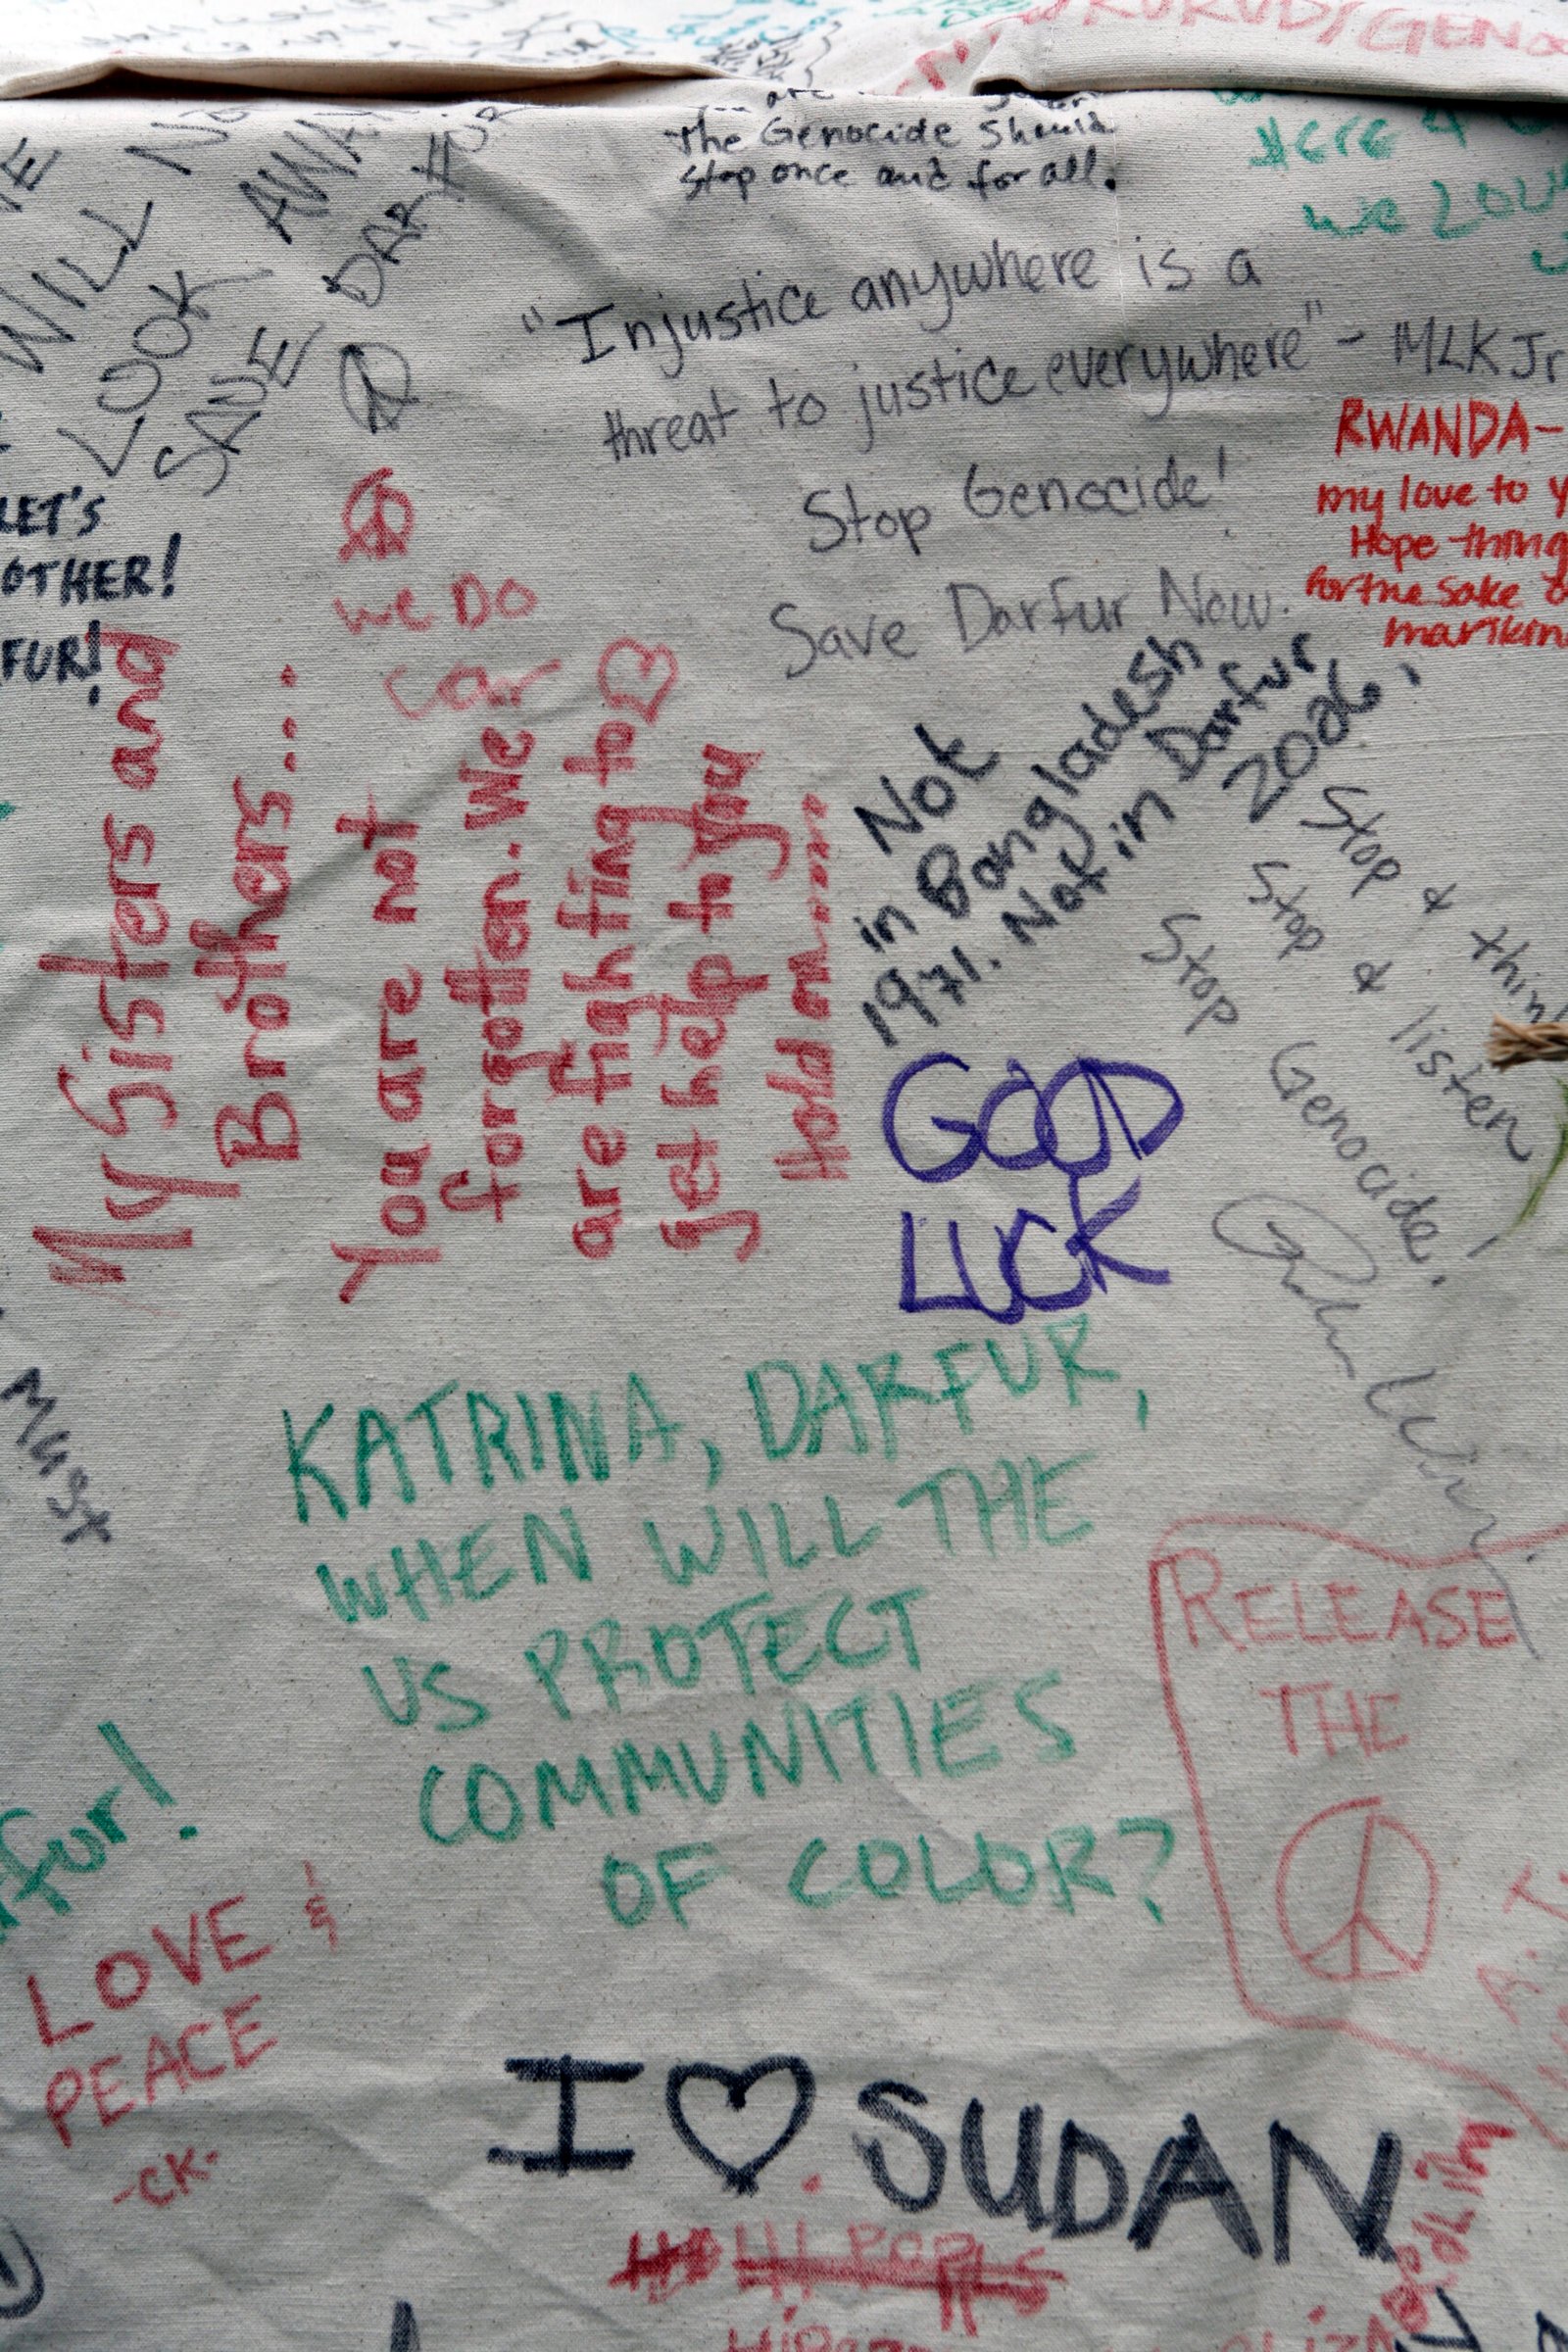 GENO
The Genocide Should
Stop once and for all.
HERE 4
WE LOVE
WILL NO
LOOK AWAY
SAVE DARFUR
"Injustice anywhere is a
threat to justice everywhere" - MLK Jr
Stop Genocide!
Save Darfur Now.
RWANDA-
my love to y
Hope thing
for the sake o
LET'S
OTHER!
FUR!
We DO
Car
My Sisters and
Brothers...
You are not
forgotten. We
are fighting to
get help to you
Hold on
Not
in Bangladesh
1971. Not in Darfur
2006!
Stop & thin
Stop & listen
Stop Genocide!
GOOD
LUCK
Must
KATRINA, DARFUR,
WHEN WILL THE
US PROTECT
COMMUNITIES
OF COLOR?
RELEASE
THE
fur!
LOVE &
PEACE
-CK-
A.T
I ♡ SUDAN